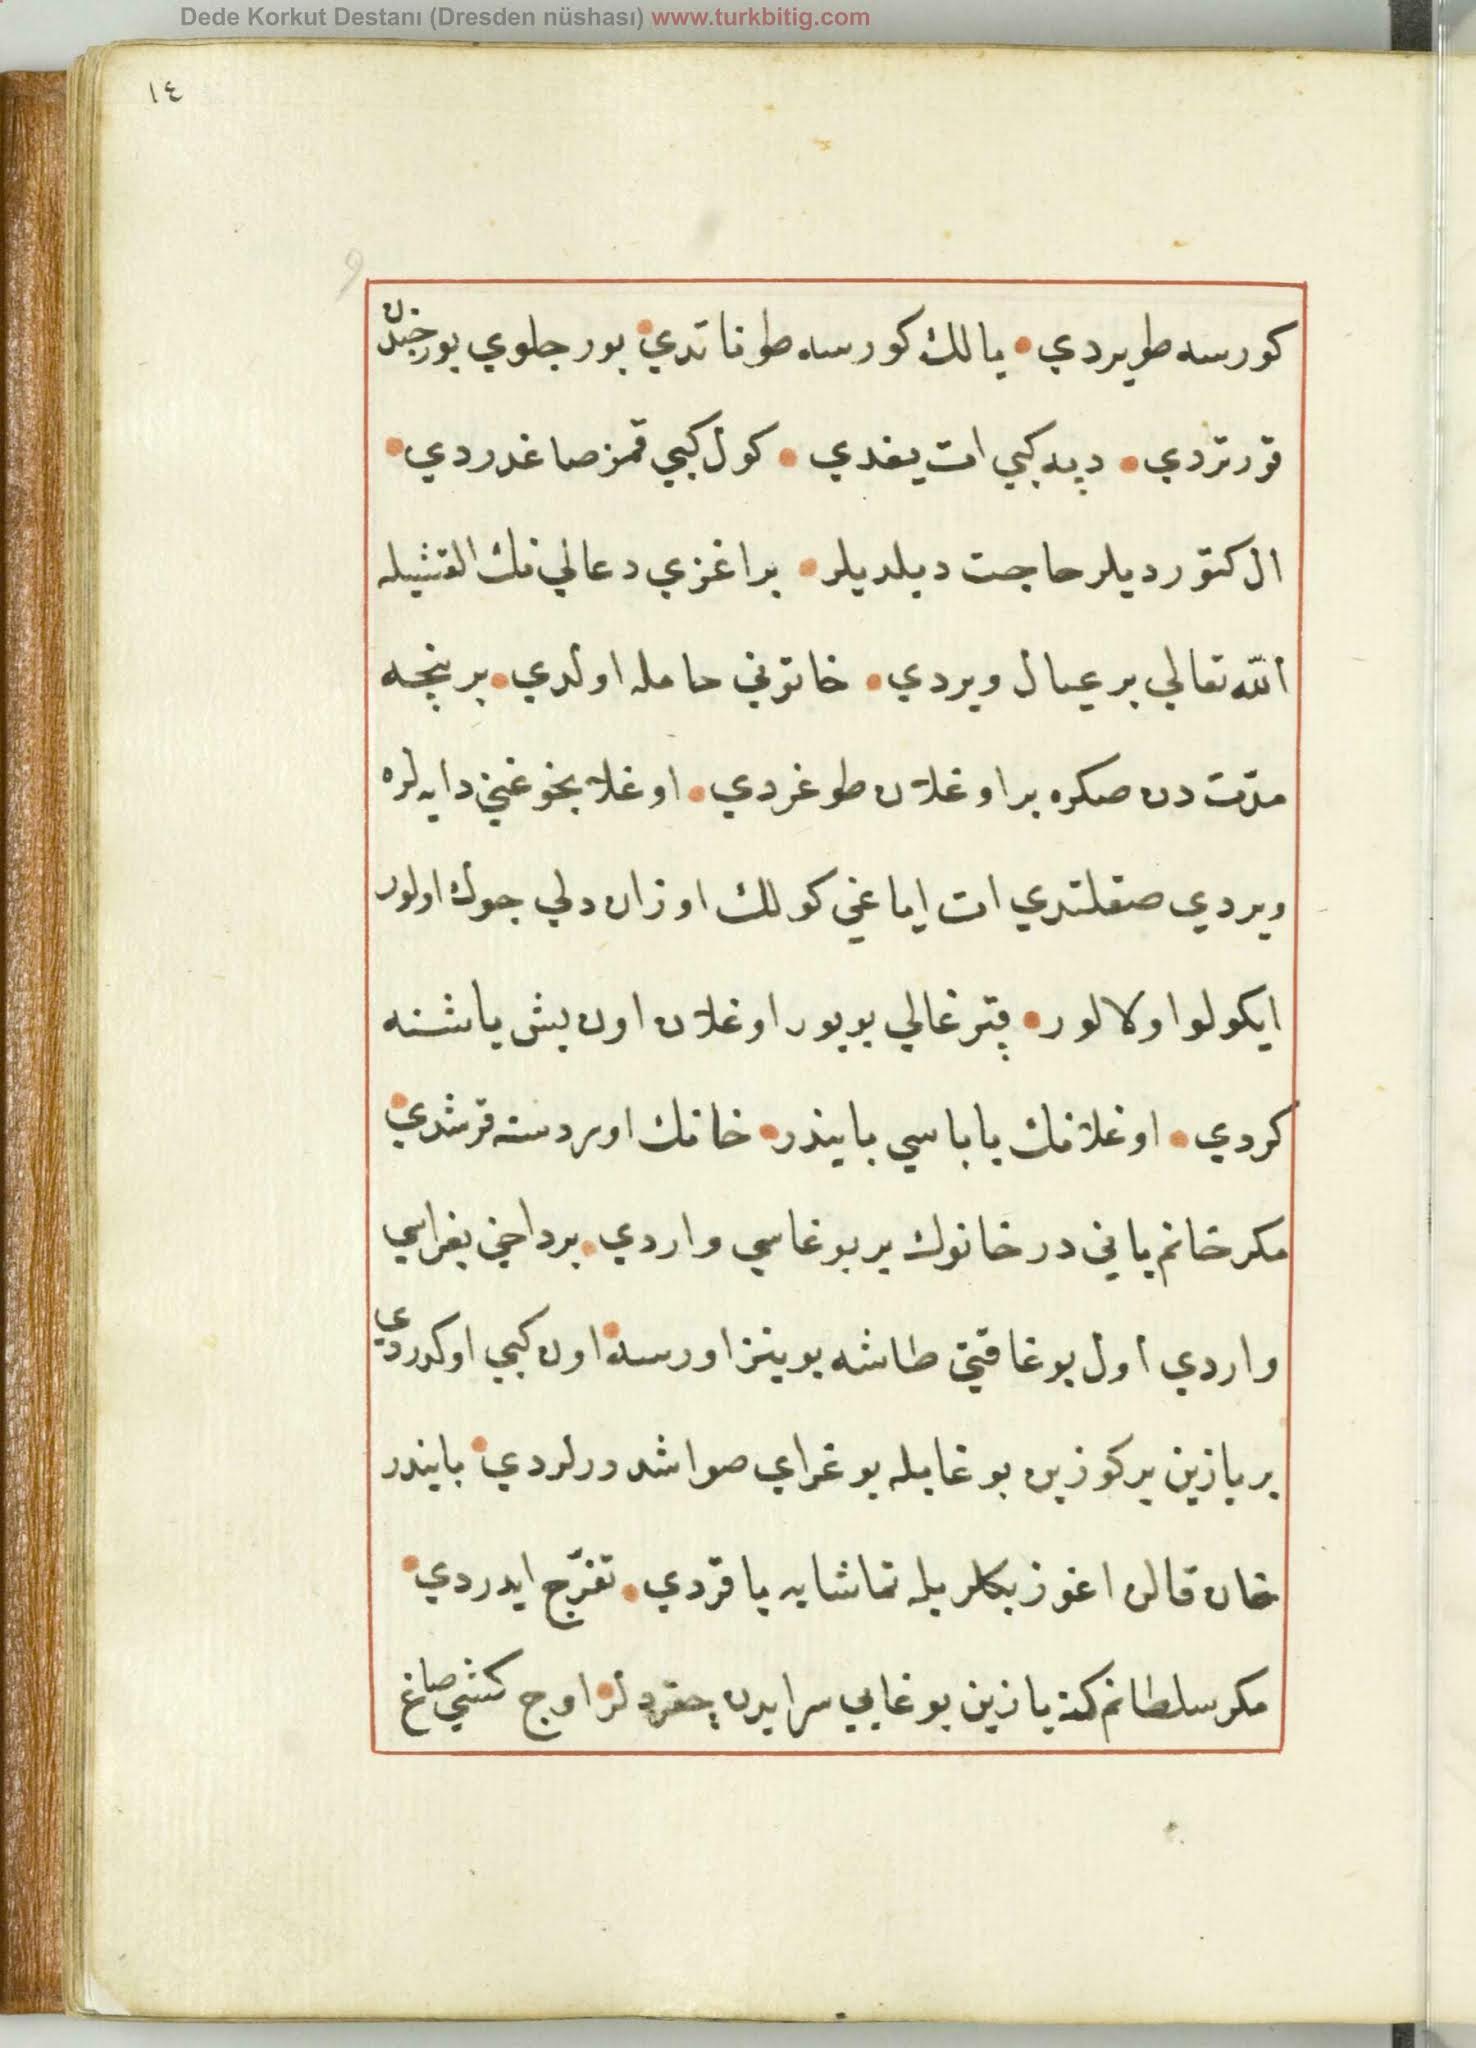 Dede Korkut Destanı (Dresden nüshası) www.turkbitig.com
١٤
كورسه طويردي • يالك كورسه طوناتدي • بورجلوي بورجندن
قورتردي • دپه كبي ات يغدي • كول كبي قمز صاغدردي •
ال كتورديلر حاجت ديلديلر • بر اغزي دعالي نك القشيله
الله تعالي بر عيال ويردي • خاتوني حامله اولدي • بر نيچه
مدّت دن صكره بر اوغلان طوغردي • اوغلانجوغني دايه لره
ويردي صقلتدي ات اياغي كولك اوزان دلي جوك اولور
ايكولو اولالور • قپرغالي بويور اوغلان اون بش ياشنه
كردي • اوغلانك باباسي بايندر • خانك اوردسنه قرشدي •
مكر خانم ياني در خانوك بر بوغاسي واردي • بر داخي بغراسي
واردي اول بوغا قتي طاشه بوينز اورسه • اون كبي اوكدردي
بر يازين بر كوزين بوغايله بوغراي صواشدورلردي • بايندر
خان قالن اغوز بكلريله تماشايه باقردي • تفرّج ايدردي •
مكر سلطانم كنه يازين بوغايي سرايدن چقردلر • اوچ كشي صاغ